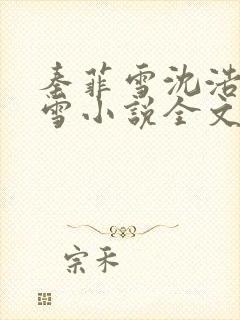 秦菲雪沈浩
雪小说全文
宗禾